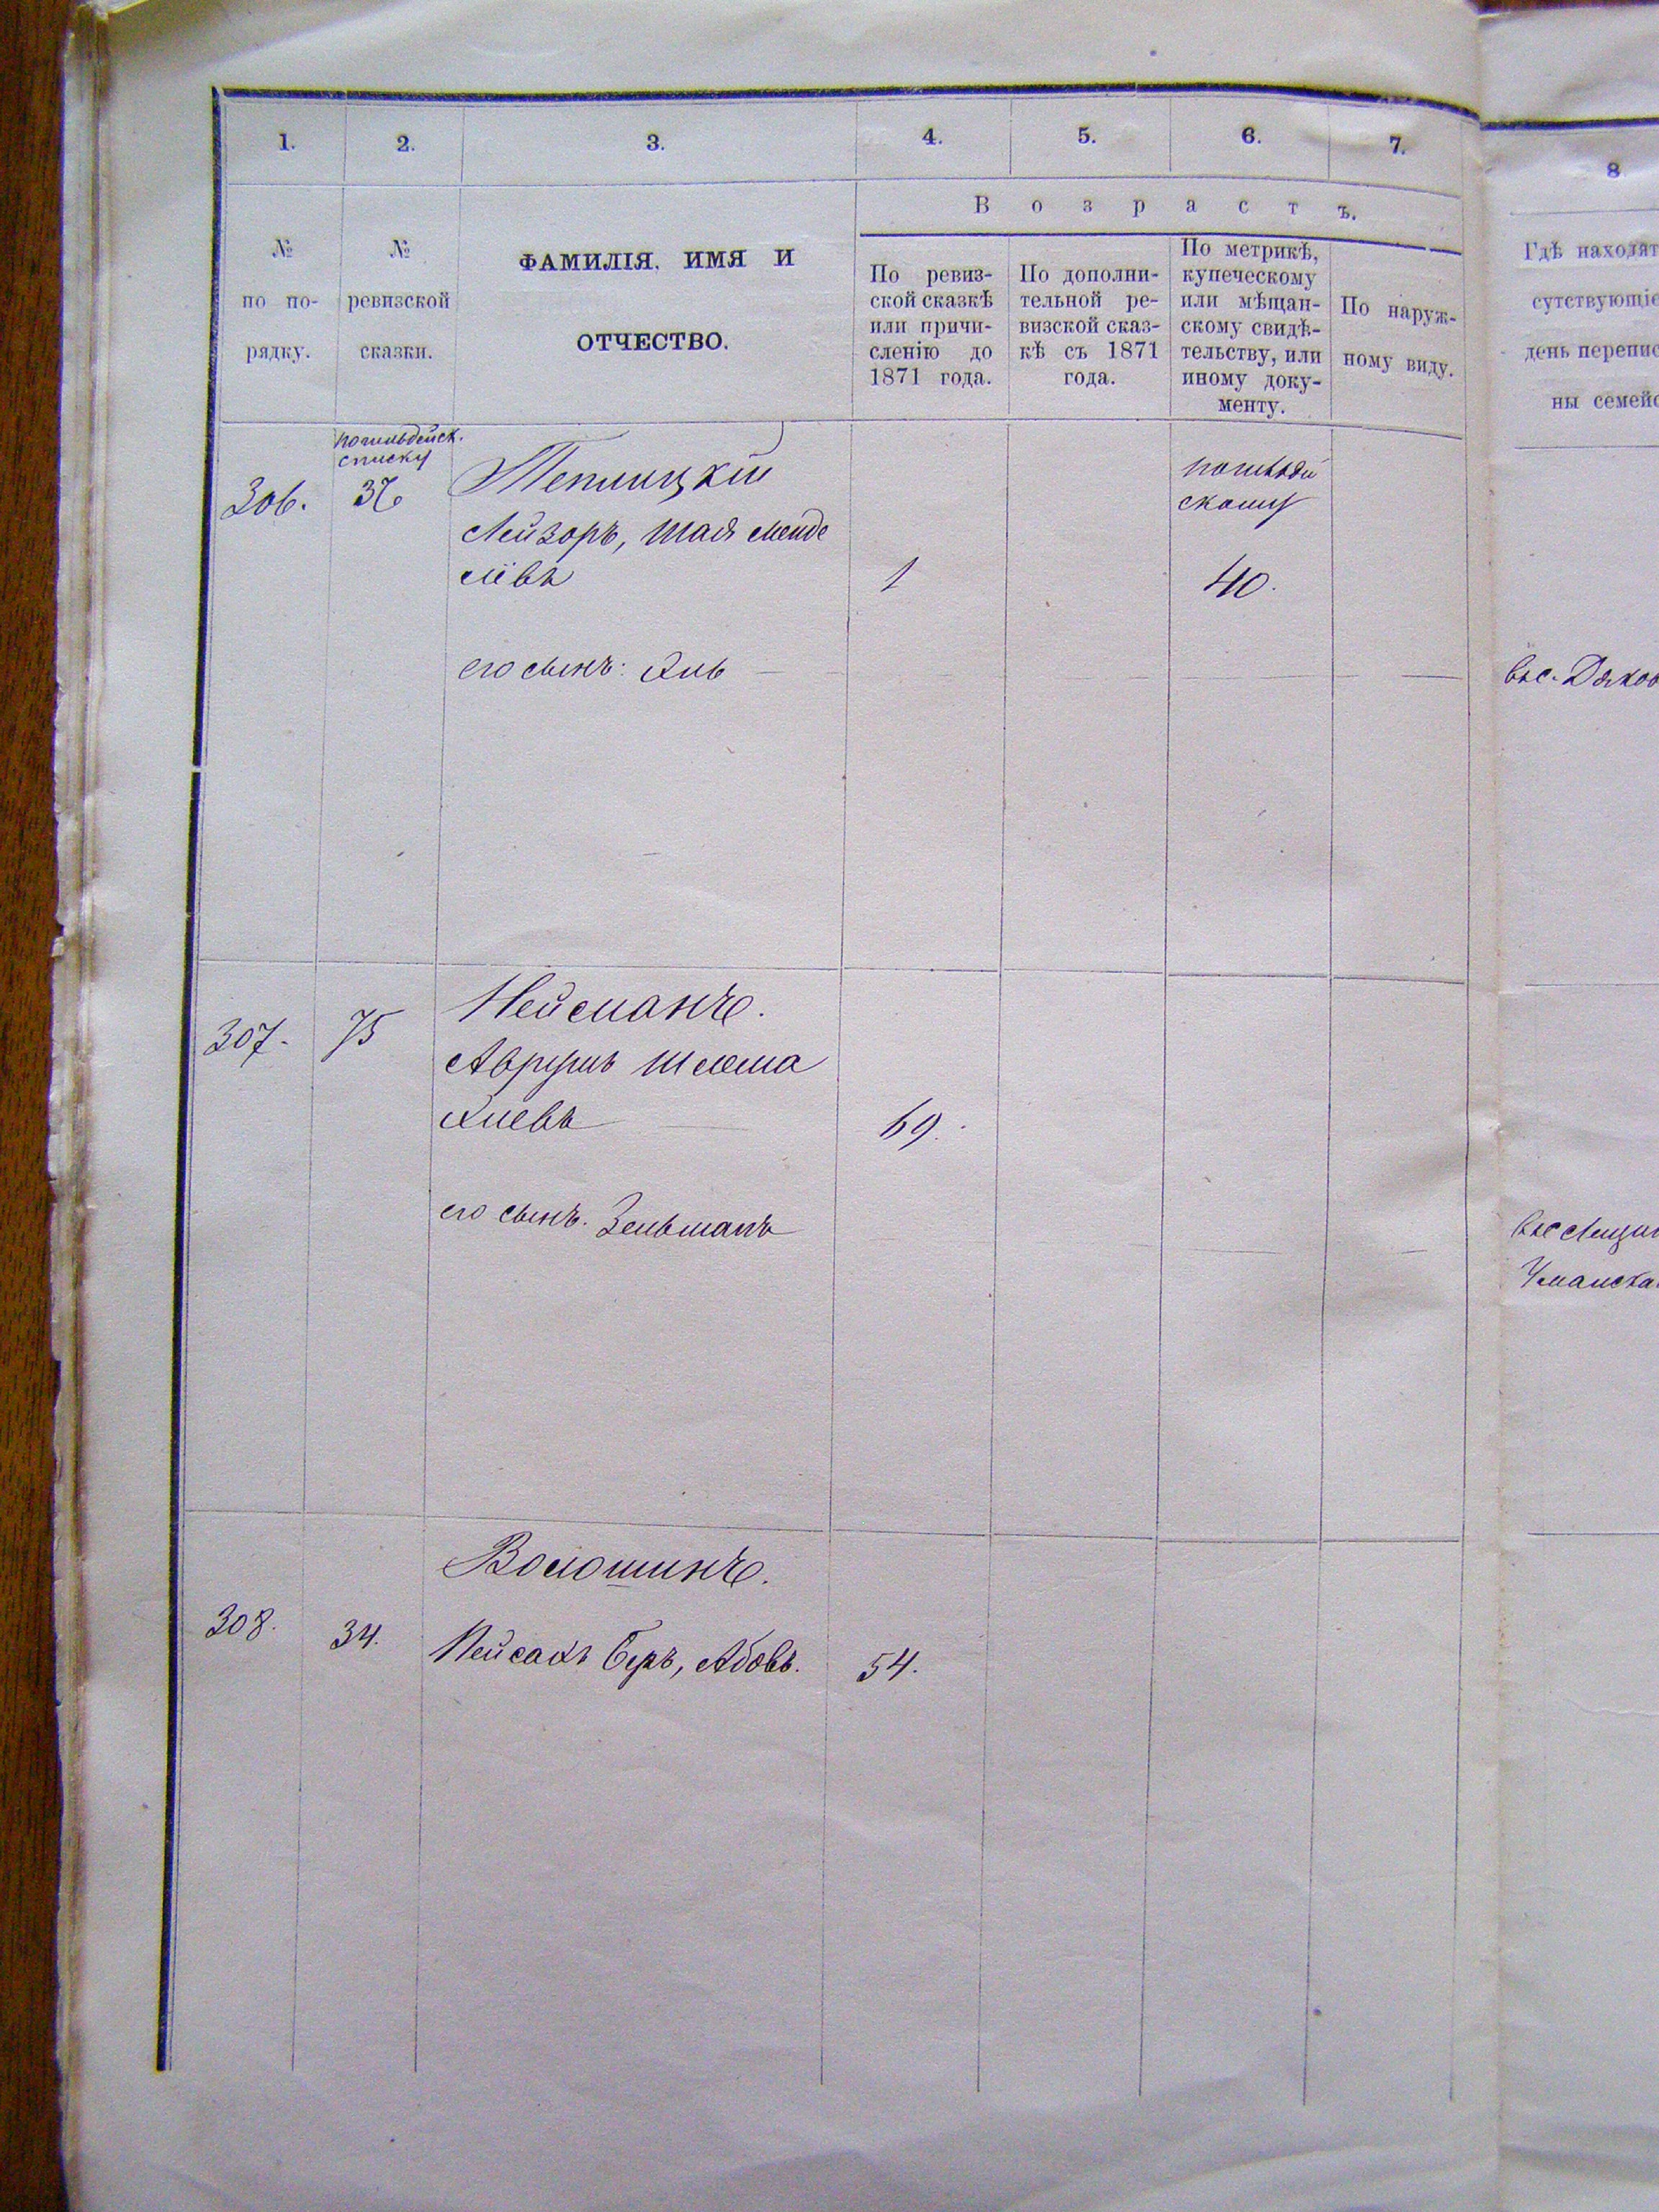 1.
2.
3.
4.
5.
6.
7.
8
В о з р а с т ъ.
№
по по-
рядку.
№
ревизской
сказки.
ФАМИЛІЯ, ИМЯ И
ОТЧЕСТВО.
По ревиз-
ской сказкѣ
или причи-
сленію до
1871 года.
По дополни-
тельной ре-
визской сказ-
кѣ съ 1871
года.
По метрикѣ,
купеческому
или мѣщан-
скому свидѣ-
тельству, или
иному доку-
менту.
По наруж-
ному виду.
Гдѣ находят
сутствующіе
день перепис
ны семейс
погильдейск.
списку
306.
37
Теплицкій
Лейзоръ, Шая Менде
левъ
1
40.
его сынъ:
въ с. Дяков
307.
75
Нейманъ.
Аврумъ Шлема
69.
его сынъ. Зельманъ
Уманска
308.
34.
Волошинъ.
Пейсахъ Беръ, Абовъ.
54.